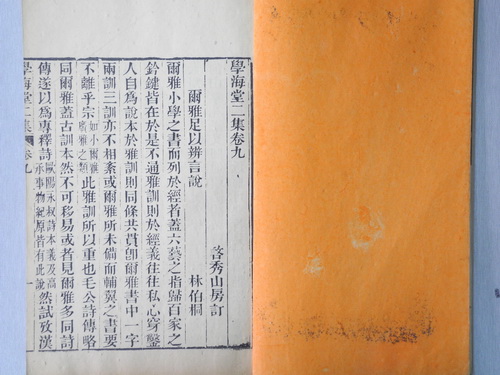 學海堂二集卷九
啓秀山房訂
爾雅足以辨言說
林伯桐
爾雅小學之書而列於經者蓋六藝之指歸百家之
鈐鍵皆在於是不通雅訓則於經義往往私心穿鑿
人自為說本於雅訓則同條共貫卽爾雅書中一字
兩訓三訓亦不相紊或爾雅所未備而輔翼之書要
不離乎宗如小爾雅廣雅之類此雅訓所以重也毛公詩傳略
同爾雅蓋古訓本然不可移易或者見爾雅多同詩
傳遂以為專釋詩歐陽永叔詩本義及高承事物紀原皆有此說然試攷漢
學海堂二集
卷九
一